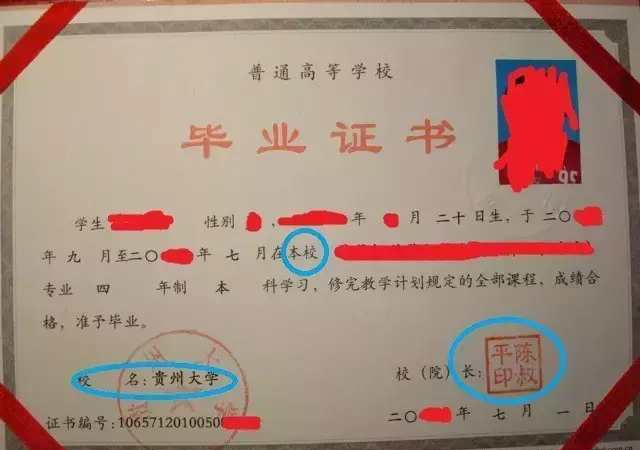 普通高等学校
毕业证书
学生 性别 , 年 月二十日生，于二〇
年九月至二〇 年七月在本校
专业 四 年制 本 科学习，修完教学计划规定的全部课程，成绩合
格，准予毕业。
校 名：贵州大学
校（院）长：
陈叔平印
证书编号：1065712010050
二〇 年 七 月 一 日